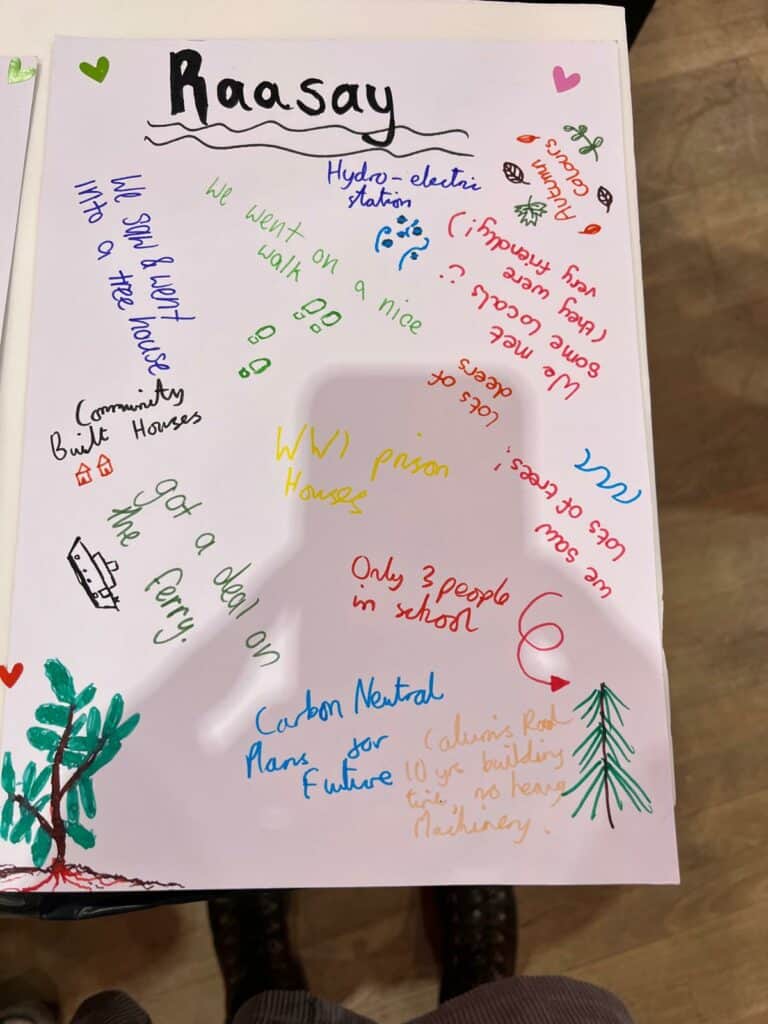 Raasay
Hydro-electric
station
Autumn
Colours
We saw & went
into a tree house
We went on a nice
walk
We met
some locals :)
(they were
very friendly!)
lots of
deers
Community
Built Houses
WW1 prison
Houses
we saw
lots of trees!
got a deal on
the ferry.
Only 3 people
in school
Carbon Neutral
Plans for
Future
Calum's Road
10 yrs building
time, no heavy
Machinery.